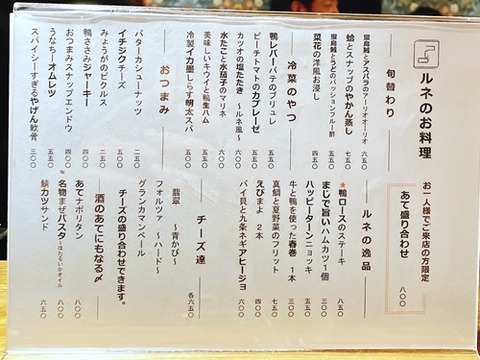 ルネのお料理
お一人様でご来店の方限定
あて盛り合わせ
八〇〇
旬替わり
蛍烏賊とアスパラのアーリオオーリオ 六五〇
蛤とスナップのやかん蒸し 七五〇
蛍烏賊とうどのパッションフルーツ酢
菜花の洋風お浸し 五五〇
冷菜のやつ
鴨レバーパテのブリュレ 五五〇
ピーチトマトのカプレーゼ 五五〇
カツオの塩たたき 〜ルネ風〜
水たこと水茄子のマリネ 六〇〇
美味しいキウイと鴨生ハム 六〇〇
冷製イカ墨しらす明太スパ 五五〇
おつまみ
バターカシューナッツ 二五〇
イチジクチーズ 五五〇
みょうがのピクルス 二五〇
鴨ささみジャーキー 四五〇
おつまみスナップエンドウ 四五〇
うなちーオムレツ 五五〇
スパイシーすぎるやげん軟骨 三〇〇
ルネの逸品
★鴨ロースのステーキ 八五〇
まじで旨いハムカツ 1個 三〇〇
ハッピーターンニョッキ
牛と鴨を使った春巻 1本 三〇〇
真鯛と夏野菜のフリット 七五〇
えびまよ 2本 四〇〇
バイ貝と九条ネギアヒージョ 六〇〇
チーズ達
翡翠 〜青かび〜
フォルツァ 〜ハード〜
グランカマンベール
各六五〇
チーズの盛り合わせできます。
酒のあてにもなる〆
あてナポリタン 八〇〇
名物まぜパスタ 〜ほたるいかオイル 八〇〇
鯖カツサンド 六五〇